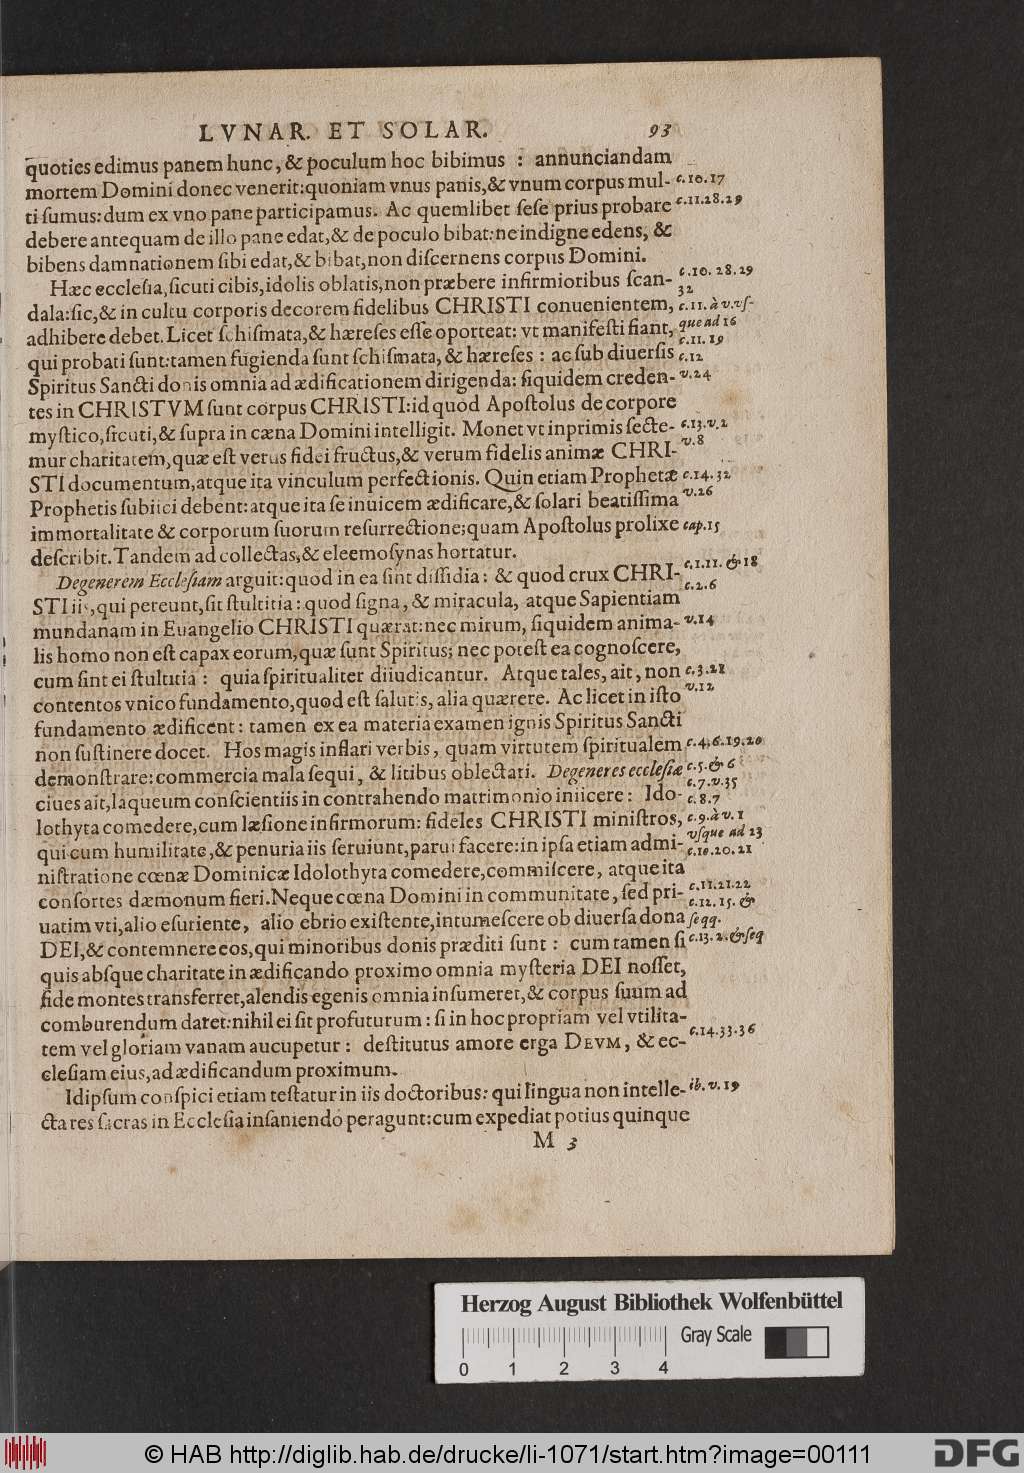 LVNAR. ET SOLAR. 93
quoties edimus panem hunc, & poculum hoc bibimus : annunciandam
mortem Domini donec venerit: quoniam vnus panis, & vnum corpus mul- c.10.17
ti ſumus: dum ex vno pane participamus. Ac quemlibet ſeſe prius probare c.11.28.29
debere antequam de illo pane edat, & de poculo bibat: ne indigne edens, &
bibens damnationem ſibi edat, & bibat, non diſcernens corpus Domini.
Hæc eccleſia, ſicuti cibis, idolis oblatis, non præbere infirmioribus ſcan- c.10. 28.29 32
dala: ſic, & in cultu corporis decorem fidelibus CHRISTI conuenientem, c.11. à v.vſ-
adhibere debet. Licet ſchiſmata, & hæreſes eſſe oporteat: vt manifeſti fiant, que ad 16 c.11. 19
qui probati ſunt: tamen fugienda ſunt ſchiſmata, & hæreſes : ac ſub diuerſis c.12
Spiritus Sancti donis omnia ad ædificationem dirigenda: ſiquidem creden- v.24
tes in CHRISTVM ſunt corpus CHRISTI: id quod Apoſtolus de corpore
myſtico, ſicuti, & ſupra in cæna Domini intelligit. Monet vt inprimis ſecte- c.13.v.2
mur charitatem, quæ eſt verus fidei fructus, & verum fidelis animæ CHRI- v.8
STI documentum, atque ita vinculum perfectionis. Quin etiam Prophetæ c.14.32
Prophetis ſubiici debent: atque ita ſe inuicem ædificare, & ſolari beatiſſima v.26
immortalitate & corporum ſuorum reſurrectione; quam Apoſtolus prolixe cap.15
deſcribit. Tandem ad collectas, & eleemoſynas hortatur.
Degenerem Eccleſiam arguit: quod in ea ſint diſſidia: & quod crux CHRI- c.1.11. & 18
STI iis, qui pereunt, ſit ſtultitia: quod ſigna, & miracula, atque Sapientiam c.2.6
mundanam in Euangelio CHRISTI quærat: nec mirum, ſiquidem anima- v.14
lis homo non eſt capax eorum, quæ ſunt Spiritus; nec poteſt ea cognoſcere,
cum ſint ei ſtultitia : quia ſpiritualiter diiudicantur. Atque tales, ait, non c.3.21
contentos vnico fundamento, quod eſt ſalutis, alia quærere. Ac licet in iſto v.12
fundamento ædificent: tamen ex ea materia examen ignis Spiritus Sancti
non ſuſtinere docet. Hos magis inflari verbis, quam virtutem ſpiritualem c.4.6.19.20
demonſtrare: commercia mala ſequi, & litibus oblectari. Degeneres eccleſiæ c.5. & 6
ciues ait, laqueum conſcientiis in contrahendo matrimonio iniicere: Ido- c.7.v.35 c.8.7
lothyta comedere, cum læſione infirmorum: fideles CHRISTI miniſtros, c.9. à v.1
qui cum humilitate, & penuria iis ſeruiunt, parui facere: in ipſa etiam admi- vſque ad 23 c.10.20.21
niſtratione cœnæ Dominicæ Idolothyta comedere, commiſcere, atque ita
conſortes dæmonum fieri. Neque cœna Domini in communitate, ſed pri- c.11.21.22
uatim vti, alio eſuriente, alio ebrio exiſtente, intumeſcere ob diuerſa dona c.12. 15. & ſeqq.
DEI, & contemnere eos, qui minoribus donis præditi ſunt : cum tamen ſi c.13. 2. & ſeq
quis abſque charitate in ædificando proximo omnia myſteria DEI noſſet,
fide montes transferret, alendis egenis omnia inſumeret, & corpus ſuum ad
comburendum daret: nihil ei ſit profuturum : ſi in hoc propriam vel vtilita-
tem vel gloriam vanam aucupetur : deſtitutus amore erga DEVM, & ec- c.14.33.36
cleſiam eius, ad ædificandum proximum.
Idipſum conſpici etiam teſtatur in iis doctoribus: qui lingua non intelle- ib. v. 19
cta res ſacras in Eccleſia inſaniendo peragunt: cum expediat potius quinque
M 3
Herzog August Bibliothek Wolfenbüttel
Gray Scale
0 1 2 3 4
© HAB http://diglib.hab.de/drucke/li-1071/start.htm?image=00111
DFG